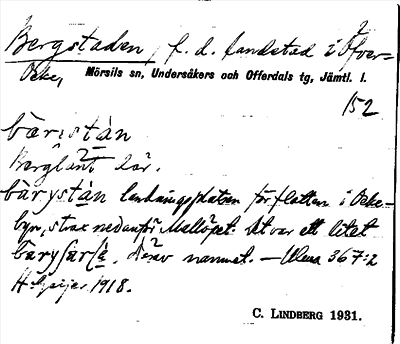 Bergstaden, f. d. landstad i Öfver-
Ocke,
Mörsils sn, Undersåkers och Offerdals tg, Jämtl. l.
152
bæ̀ristàn
Berglänt där.
bærystàn landningsplatsen för flotten i Ocke-
byn, strax nedanför Mallöpet. Det var ett litet
, därav namnet. — Ulma 367:2
H. Geijer 1918.
C. LINDBERG 1931.